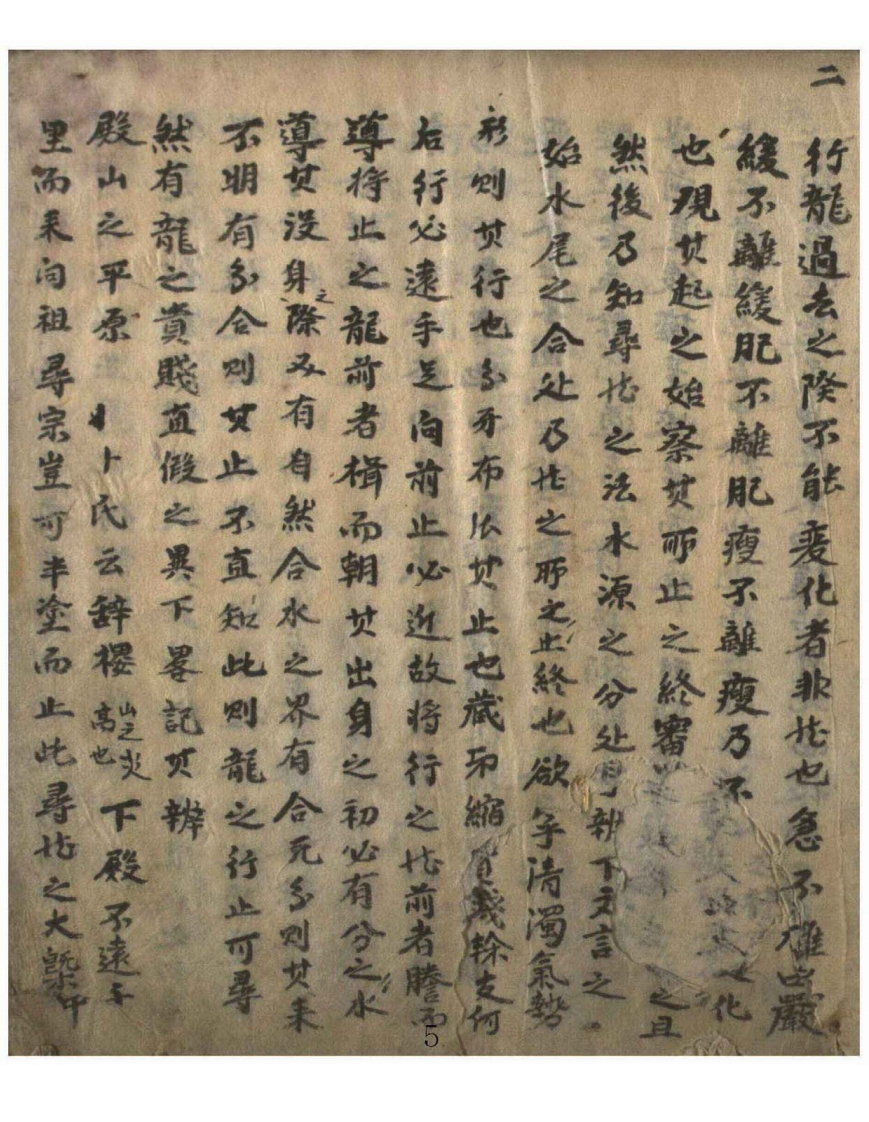 二
行龍過去之際不能変化者非龙也急不離 嚴
緩不離緩肥不離肥瘦不離瘦乃不 化
也現其起之始察其所止之終審 之且
然後乃知尋龙之法水源之分处 辨下文言之
始水尾之合处乃龙之所之止終也欲 清濁氣勢
形則其行也分牙布爪其止也藏 縮 餘支何
右行必遠手足向前止必近故将行之龙前者謄而
導将止之龍前者楫而朝其出身之初必有分之水
導其没身之際又有自然合水之界有合无分則其来
不明有分合則其止不直知此則龍之行止可尋
然有龍之貴賤直假之異下畧記其辨
殿山之平原 卜氏云辞樓山之炎高也下殿不遠千
里而来向祖尋宗豈可半塗而止此尋龙之大
5